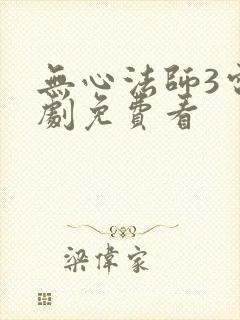 無心法師3電
劇免費看
梁偉家